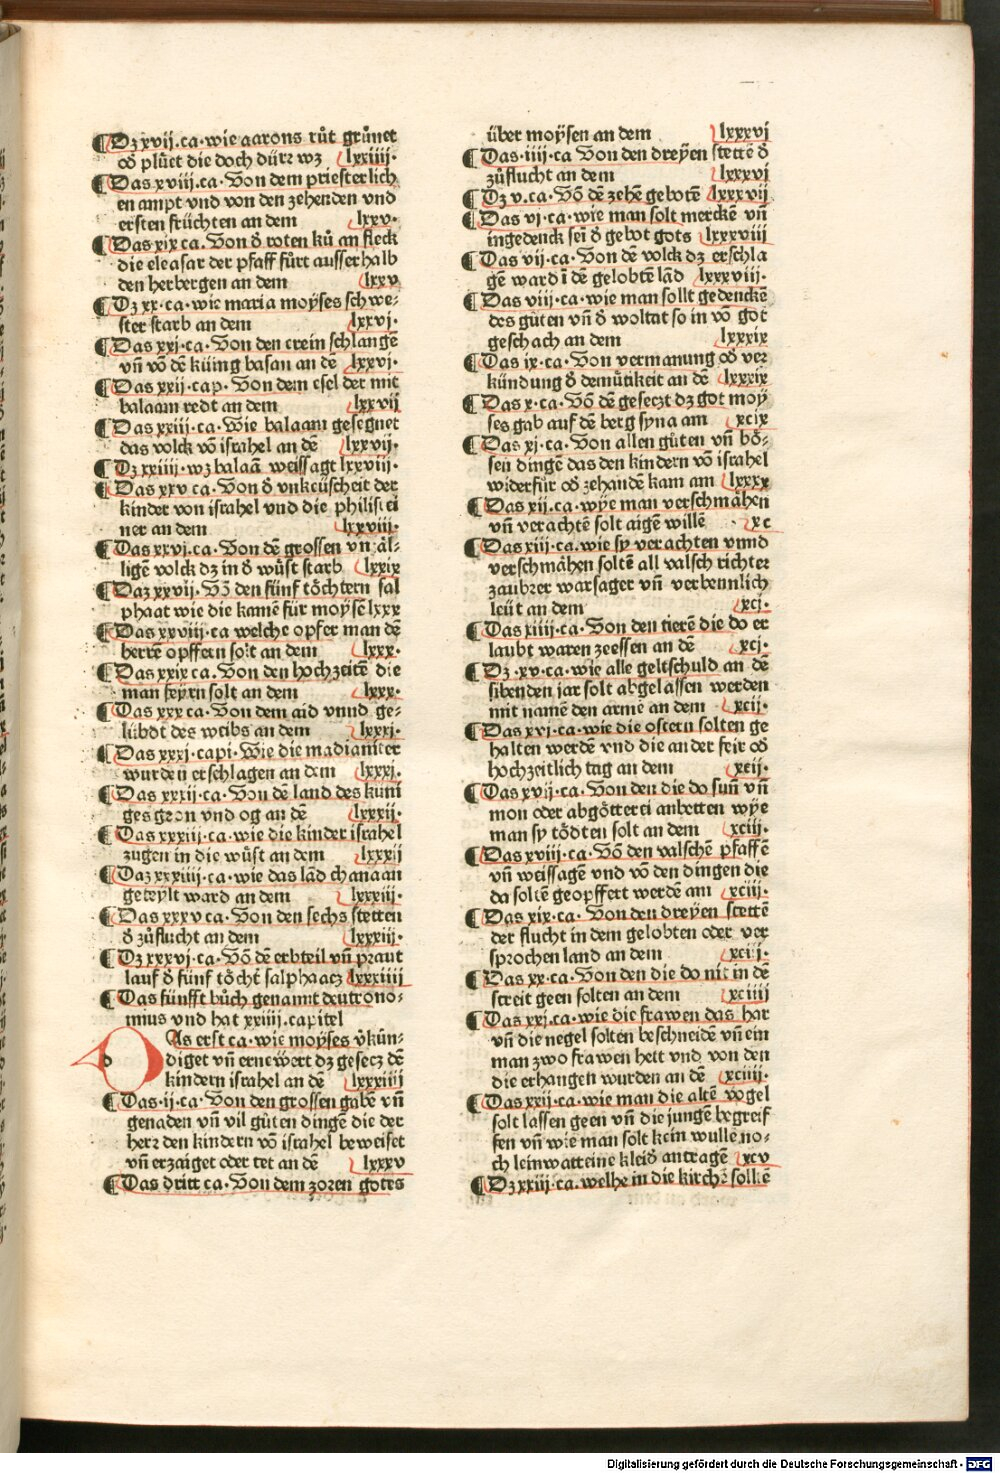 ¶ Dz xvij.ca.wie aarons růt grůnet
oď plůet die doch dürr wz lxxiiij.
¶ Das xviij.ca.Von dem priesterlich
en ampt vnd von den zehenden vnd
ersten früchten an dem lxxv.
¶ Das xix ca.Von ď roten ků an fleck
die eleasar der pfaff fůrt ausserhalb
den herbergen an dem lxxv
¶ Dz xx.ca.wie maria moÿses schwe⸗
ster starb an dem lxxvj.
¶ Das xxj.ca.Von den erein schlangē
vñ vō dē küing basan an dē lxxvj.
¶ Das xxij cap.Von dem esel der mit
balaam redt an dem lxxvij
¶ Das xxiij.ca.Wie balaam gesegnet
das volck vō israhel an dē lxxvij.
¶ Dz xxiiij.wz balaā weissagt lxxviij.
¶ Das xxv ca.Von ď vnkeüscheit der
kinder von israhel vnd die philistei
ner an dem lxxviij.
¶ Das xxvj.ca.Von dē grossen vn̄ äl⸗
ligē volck dz in ď wůst starb lxxix
¶ Daz xxvij.Vō den fünf töchtern sal
phaat wie die kamē für moÿsē lxxx
¶ Das xxviij.ca welche opfer man dē
herrē opffern solt an dem lxxx.
¶ Das xxix ca.Von den hochzeitē die
man feÿrn solt an dem lxxx.
¶ Das xxx ca.Von dem aid vnnd ge⸗
lübdt des weibs an dem lxxxj.
¶ Das xxxj.capi.Wie die madianiter
wurden erschlagen an dem lxxxj.
¶ Das xxxij.ca.Von dē land des küni
ges geon vnd og an dē lxxxij.
¶ Das xxxiij.ca.wie die kinder israhel
zugen in die wůst an dem lxxxij
¶ Daz xxxiiij.ca.wie das lād chanaan
geteylt ward an dem lxxxiij.
¶ Das xxxv ca.Von den sechs stetten
ď zůflucht an dem lxxxiij.
¶ Dz xxxvj.ca.Vō dē erbteil vñ praut
lauf ď fünf töcht̄ salphaacz lxxxiiij
¶ Das fünfft bůch genannt deutrono⸗
mius vnd hat xxiiij.capitel
DAs erst ca.wie moÿses v̊kün⸗
diget vñ ernewert dz gesecz dē
kindern israhel an dē lxxxiiij
¶ Das.ij.ca.Von den grossen gabē vñ
genaden vñ vil gůten dingē die der
herr den kindern vō israhel beweiset
vñ erzaiget oder tet an dē lxxxv
¶ Das dritt ca.Von dem zoren gotes
über moÿsen an dem lxxxvj
¶ Das.iiij.ca Von den dreÿen stettē ď
zůflucht an dem lxxxvj
¶ Dz v.ca.Vō dē zehē gebotē lxxxvij
¶ Das vj.ca.wie man solt merckē vñ
ingedenck sei ď gebot gots lxxxviij
¶ Das vij.ca.Von dē volck dz erschla
gē ward ī dē gelobtē lād lxxxviij.
¶ Das viij.ca.wie man sollt gedenckē
des gůten vñ ď woltat so in vō got
geschach an dem lxxxix
¶ Das ix.ca.Von vermanung oď ver
kündung ď demůtikeit an dē lxxxix
¶ Das x.ca.Vō dē geseczt dz got moÿ
ses gab auf dē berg syna am xcix
¶ Das xj.ca.Von allen gůten vñ bö⸗
sen dingē das den kindern vō israhel
widerfůr oď zehandē kam am lxxxx
¶ Das xij.ca.wÿe man verschmähen
vñ verachtē solt aigē willē xc
¶ Das xiij.ca.wie sy verachten vnnd
verschmähen soltē all valsch richter
zaubrer warsager vñ verbennlich
leüt an dem xcj.
¶ Das xiiij.ca.Von den tierē die do er
laubt waren zeessen an dē xcj.
¶ Dz.xv.ca.wie alle geltschuld an dē
sibenden jar solt abgelassen werden
mit namē den armē an dem xcij.
¶ Das xvj.ca.wie die ostern solten ge
halten werdē vnd die ander feir oď
hochzeitlich tag an dem xcij.
¶ Das xvij.ca.Von den die do sun̄ vñ
mon oder abgötterei anbetten wÿe
man sy tödten solt an dem xciij.
¶ Das xviij.ca.Vō den valschē pfaffē
vñ weissagē vnd vō den dingen die
da soltē geopffert werdē am xciij.
¶ Das xix.ca. Von den dreÿen stettē
der flucht in dem gelobten oder ver
sprochen land an dem xciij.
¶ Das xx.ca.Von den die do nit in dē
streit geen solten an dem xciiij
¶ Das xxj.ca.wie die frawen das har
vñ die negel solten beschneidē vñ ein
man zwo frawen hett vnd von den
die erhangen wurden an dē xciiij.
¶ Das xxij.ca.wie man die altē vogel
solt lassen geen vñ die jungē begreif
fen vñ wie man solt kein wulle no⸗
ch leinwatteine kleiď antragē xcv
¶ Dz xxiij.ca.welhe in die kirchē sollē
Digitalisierung gefördert durch die Deutsche Forschungsgemeinschaft - DFG